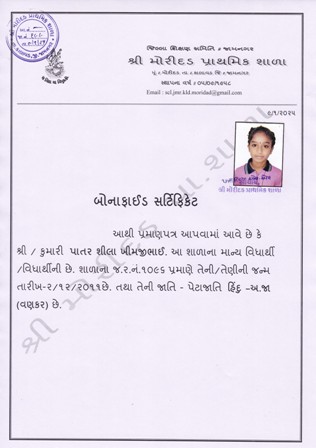 જિલ્લા શિક્ષણ સમિતિ – જામનગર
શ્રી મોરીદડ પ્રાથમિક શાળા
મું. મોરીદડ, તા. કાલાવડ, જિ. જામનગર
Email : scl.jmr.kld.moridad@gmail.com
૯/૧/૨૦૨૫
શ્રી મોરીદડ પ્રાથમિક શાળા
બોનાફાઈડ સર્ટિફિકેટ
આથી પ્રમાણપત્ર આપવામાં આવે છે કે
શ્રી / કુમારી પાતર શીલા ખીમજીભાઈ. આ શાળાના માન્ય વિધાર્થી
/વિધાર્થીની છે. શાળાના જ.ર.નં.૧૦૯૬ પ્રમાણે તેની/તેણીની જન્મ
તારીખ-૨/૧૨/૨૦૧૧છે. તથા તેની જાતિ - પેટાજાતિ હિંદુ -અ.જા
(વણકર) છે.